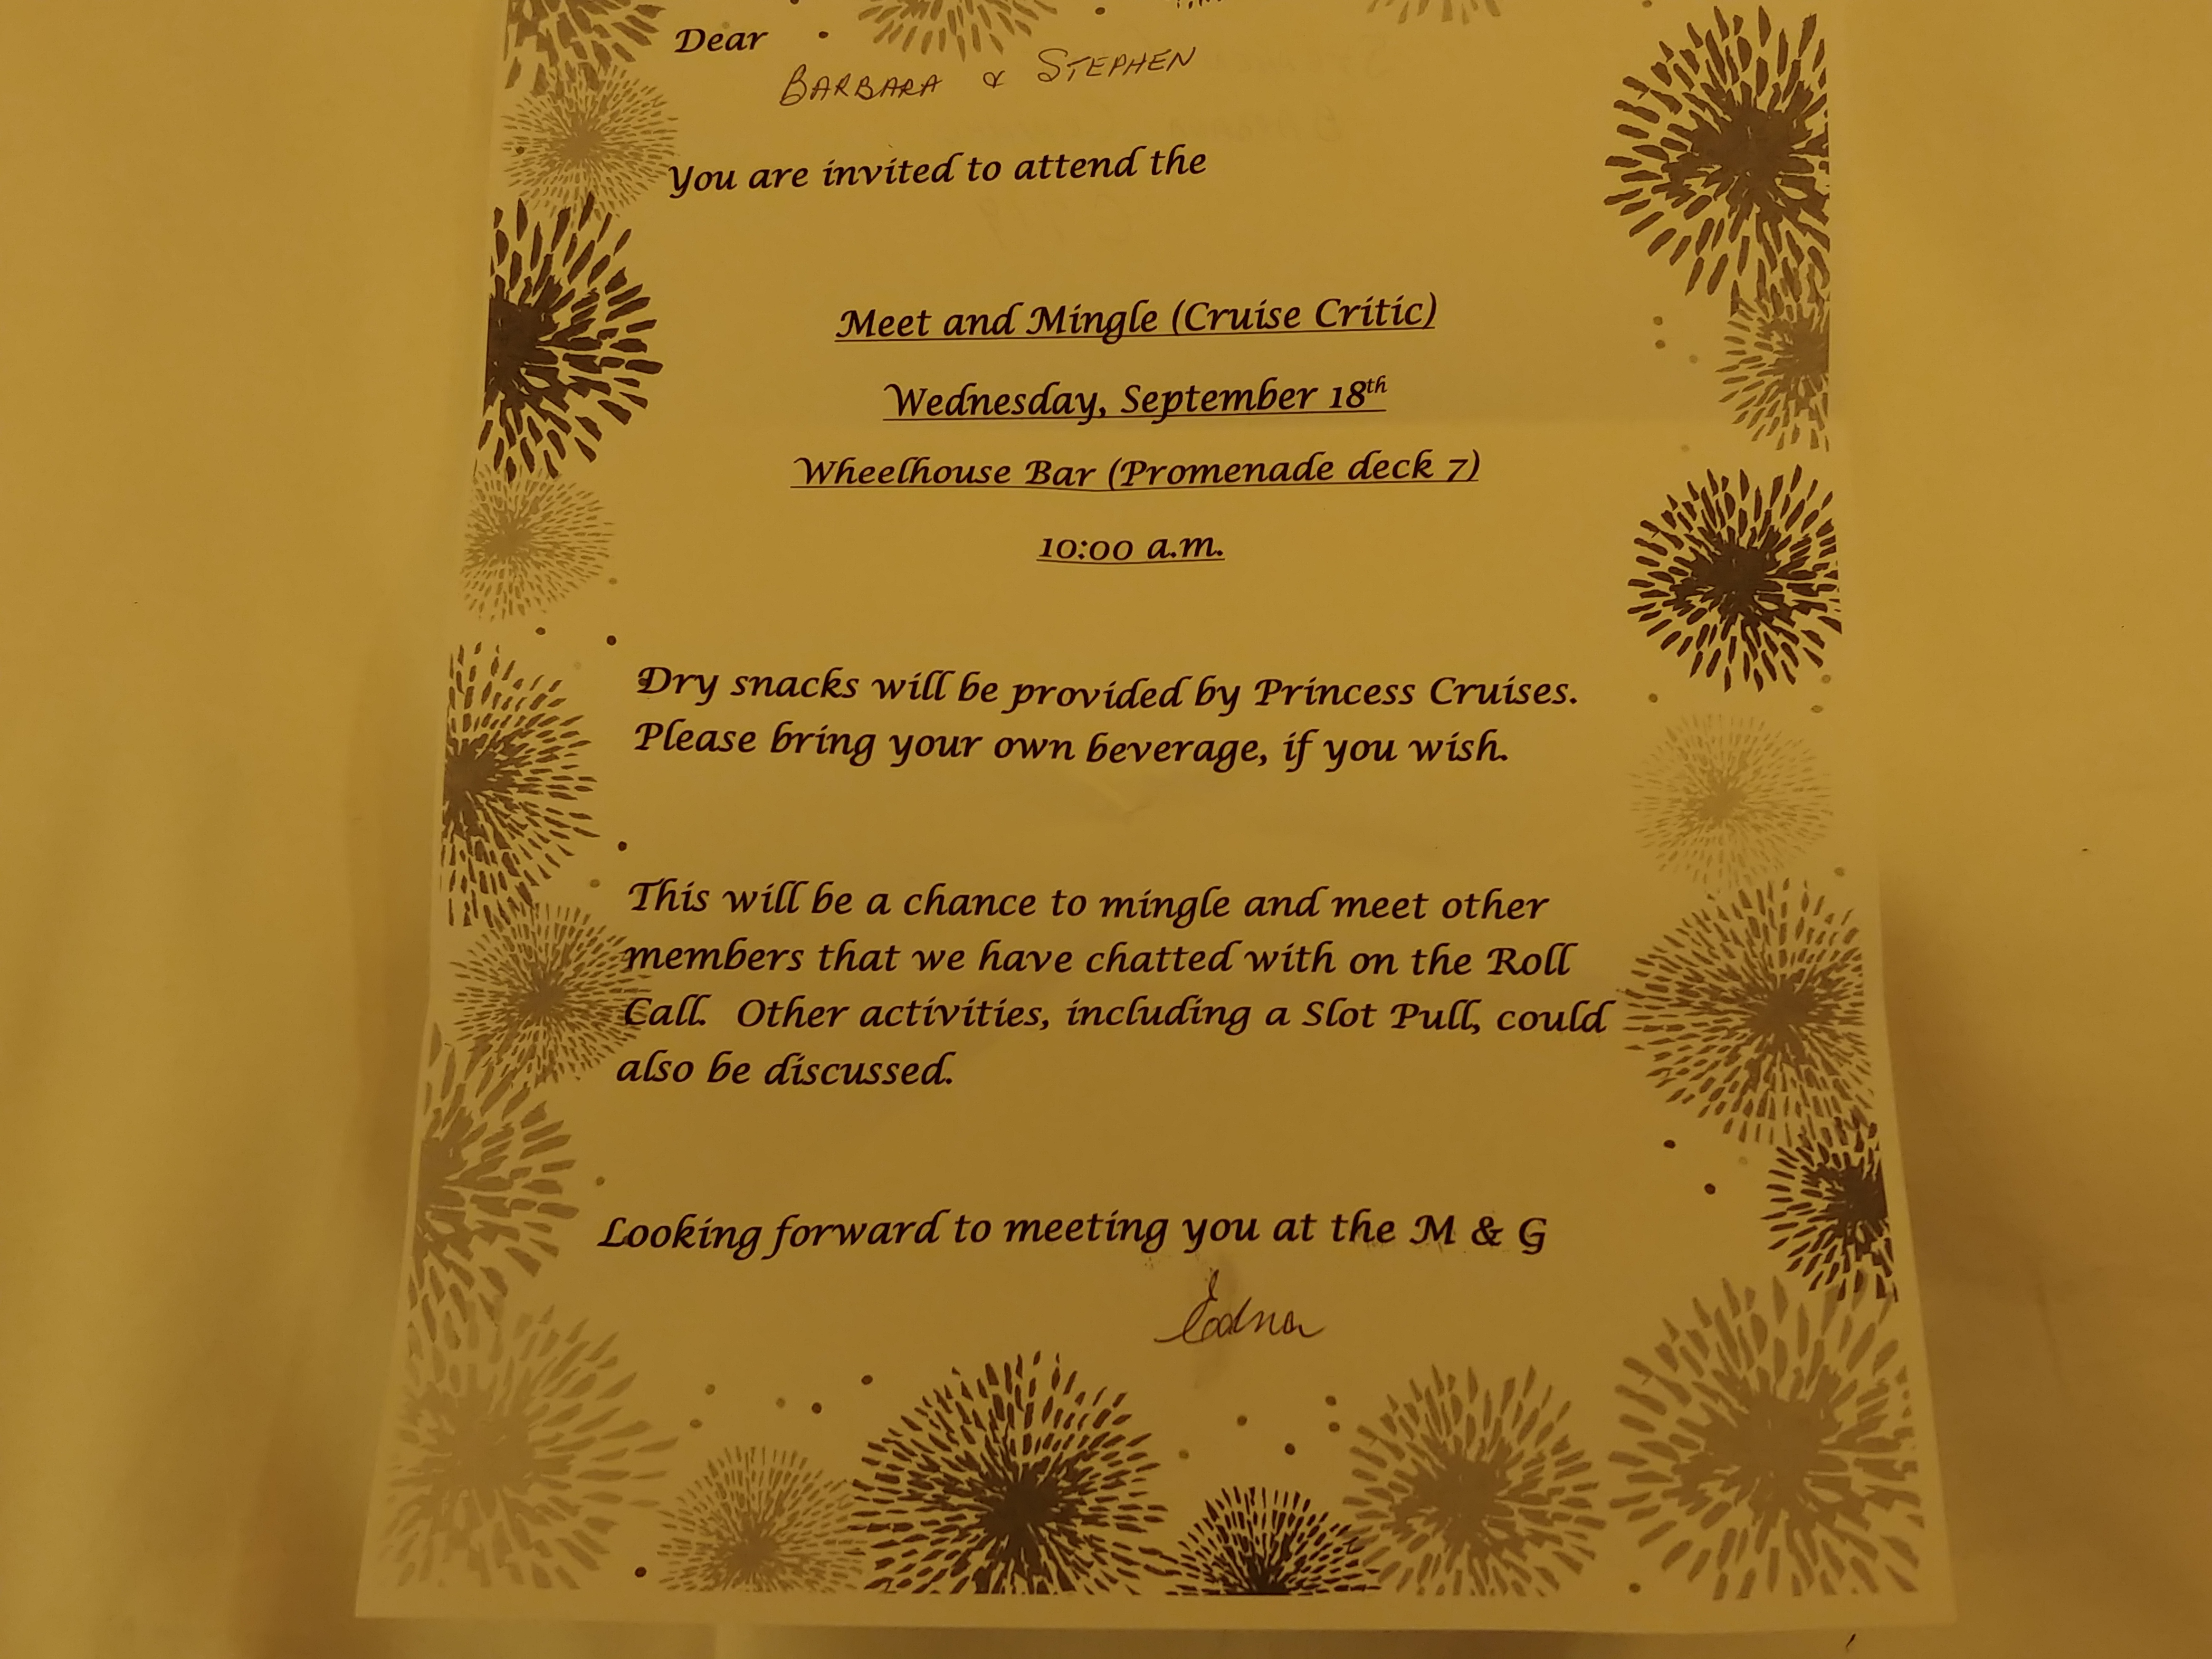 Dear
BARBARA & STEPHEN
You are invited to attend the
Meet and Mingle (Cruise Critic)
Wednesday, September 18th
Wheelhouse Bar (Promenade deck 7)
10:00 a.m.
Dry snacks will be provided by Princess Cruises.
Please bring your own beverage, if you wish.
This will be a chance to mingle and meet other
members that we have chatted with on the Roll
Call. Other activities, including a Slot Pull, could
also be discussed.
Looking forward to meeting you at the M & G
Edna